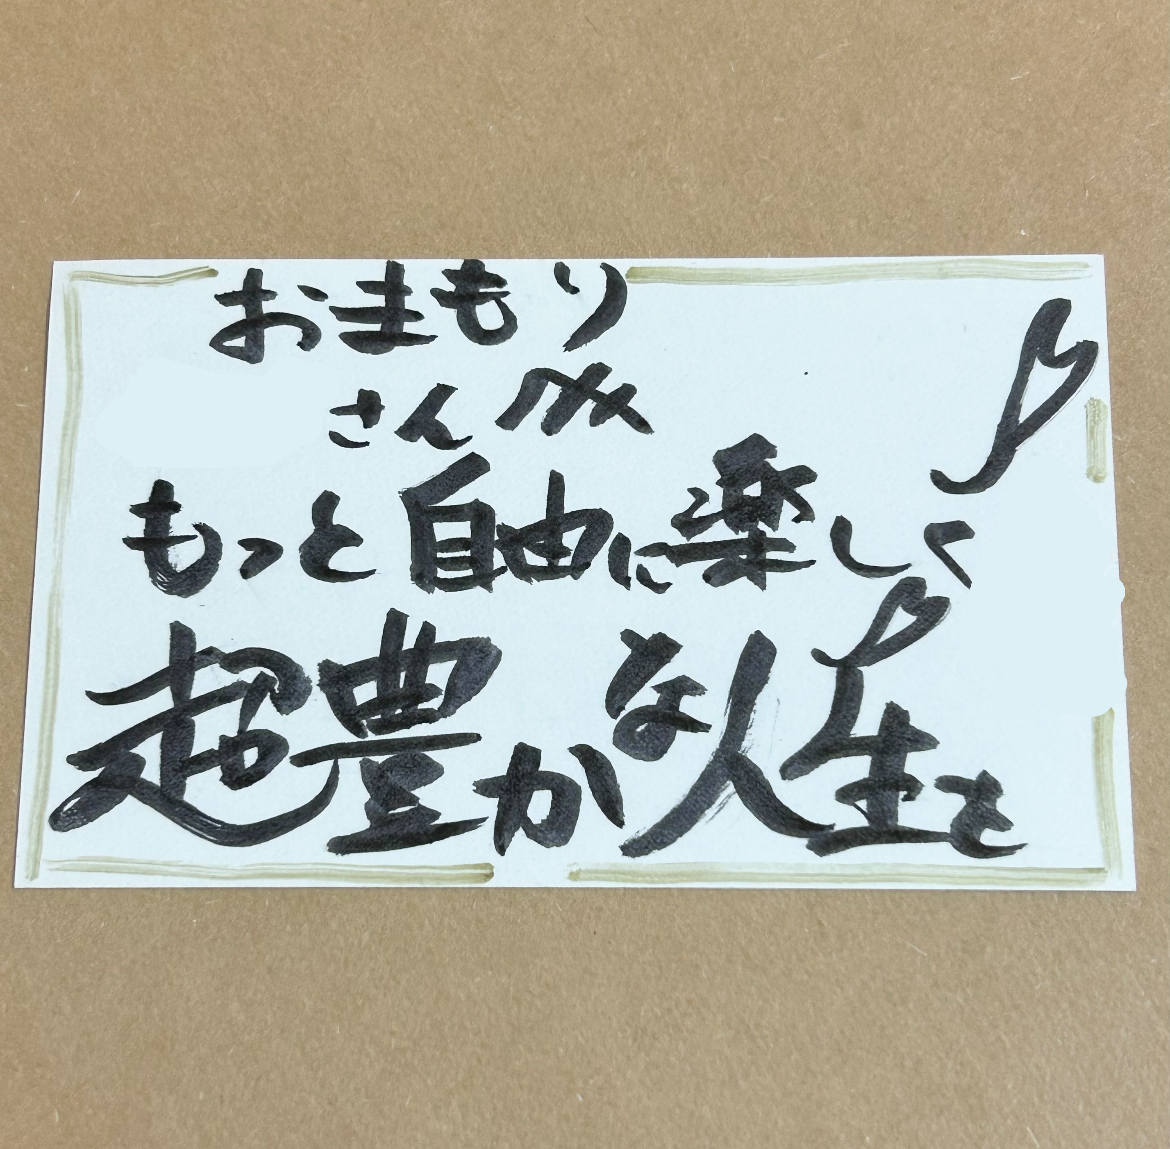 おまもり
さんへ
もっと自由に楽しく
超豊かな人生を